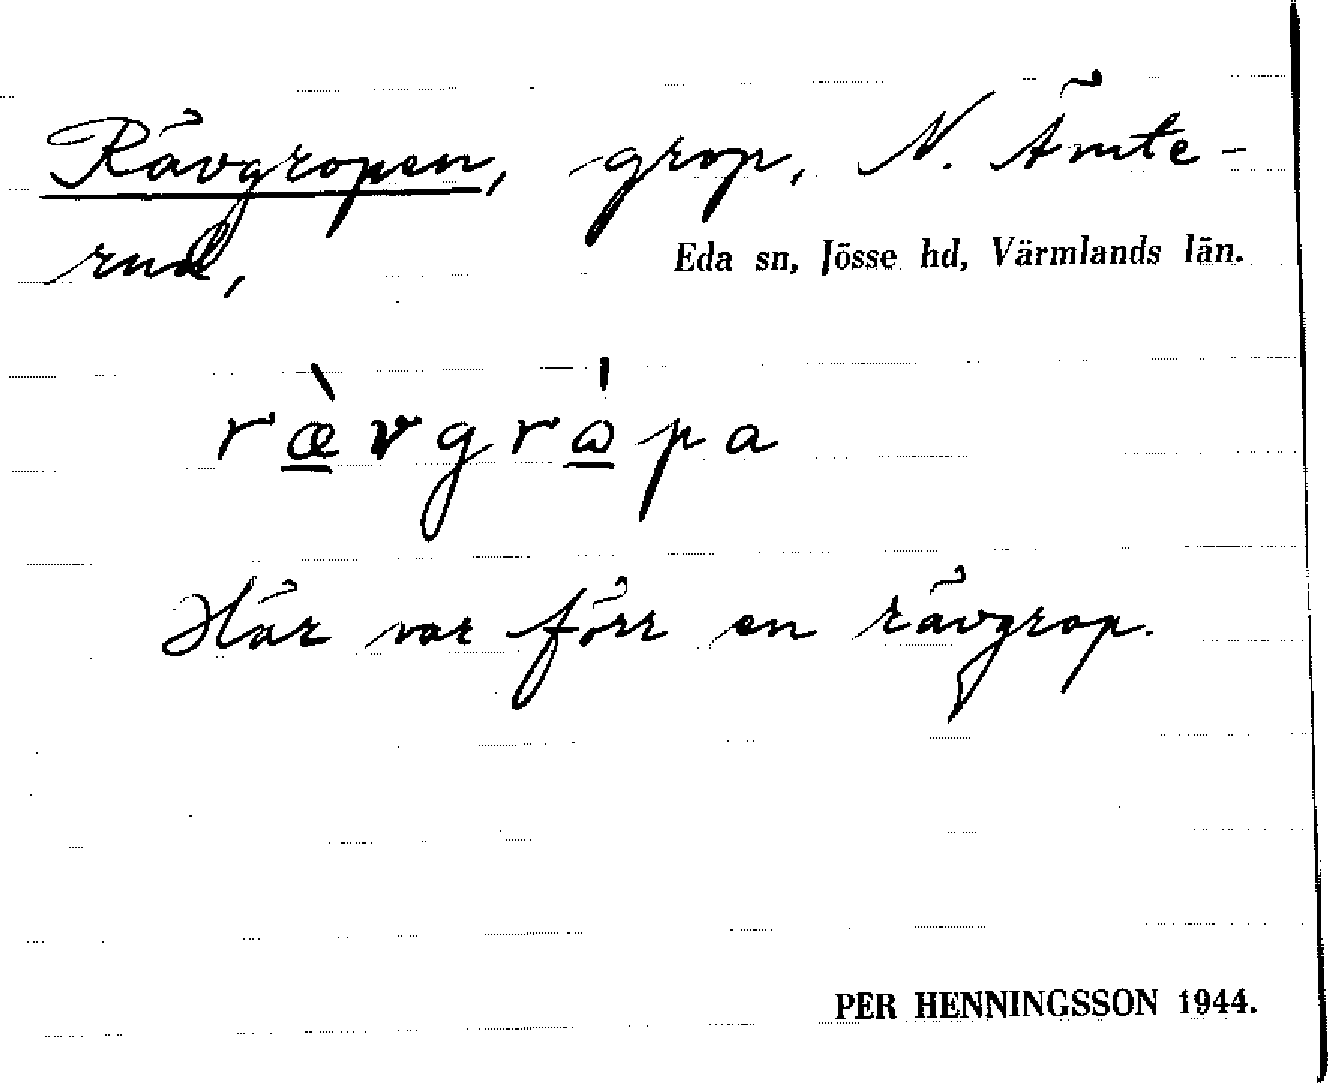 Rävgropen, grop, N. Ämte-
rud,
Eda sn, Jösse hd, Värmlands län.
ræ̀vgrɷ̍pa
Här var förr en rävgrop.
PER HENNINGSSON 1944.